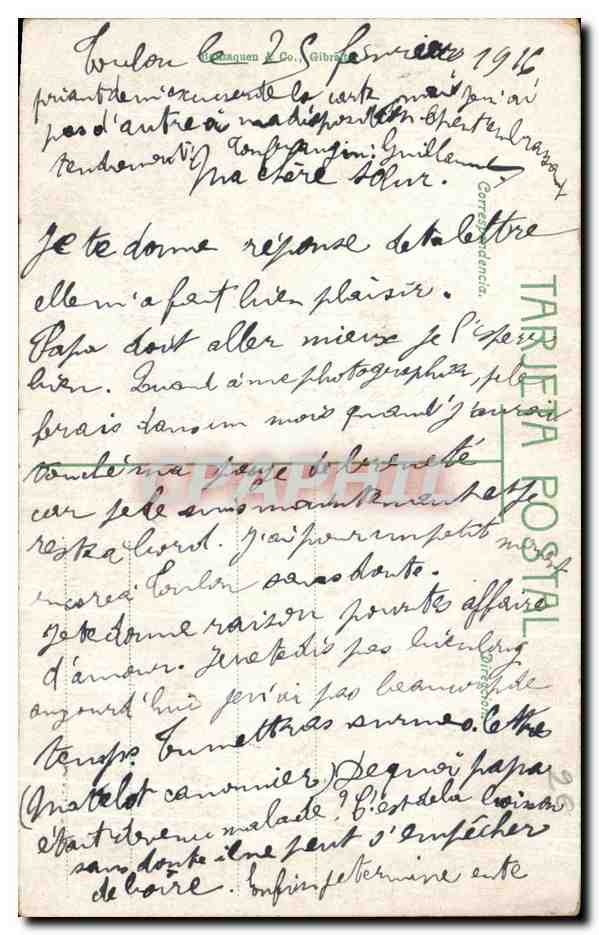 Toulon le 25 février 1916
Benzaquen & Co., Gibraltar
priant de m'excuser de la carte mais je n'ai
pas d'autre à ma disposition en t'embrassant
tendrement Ton frangin : Guillaume
Ma chère sœur.
Je te donne réponse de ta lettre
elle m'a fait bien plaisir.
Papa doit aller mieux je l'esper
bien. Quand à me photographier, je le
ferais dans un mois quand j'aurai
touché ma paye de breveté
car je le suis maintenant et je
reste à bord. J'ai pour un petit moment
encore à Toulon sans doute.
Je te donne raison pour tes affaire
d'amour. Je ne te dis pas bien long
aujourd'hui je n'ai pas beaucoup de
temps. Tu mettras sur mes lettres
(Matelot canonnier) De quoi papa
était devenu malade? C'est de la boisson
sans doute il ne peut s'empêcher
de boire. Enfin je termine en te
Correspondencia.
TARJETA POSTAL
Dirección
CPAPHIL
26